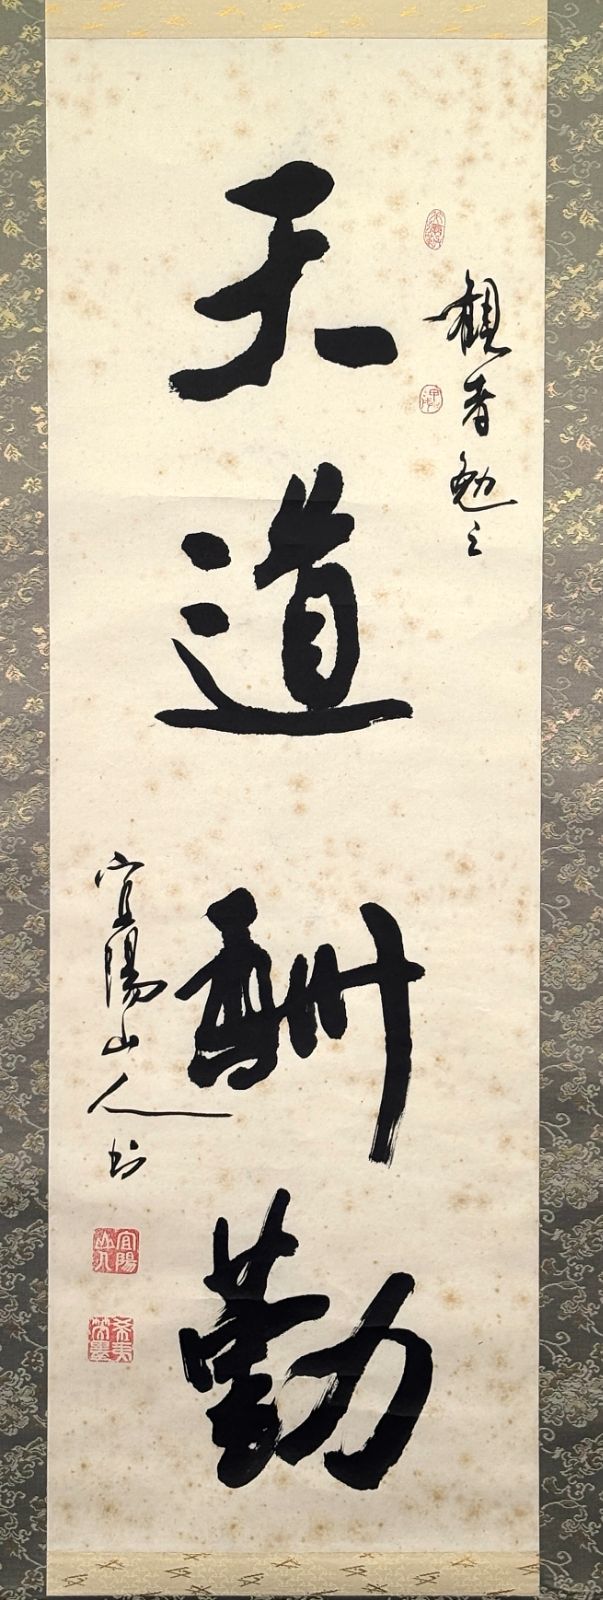 観者勉之
天道酬勤
宜陽山人书
宜陽山人